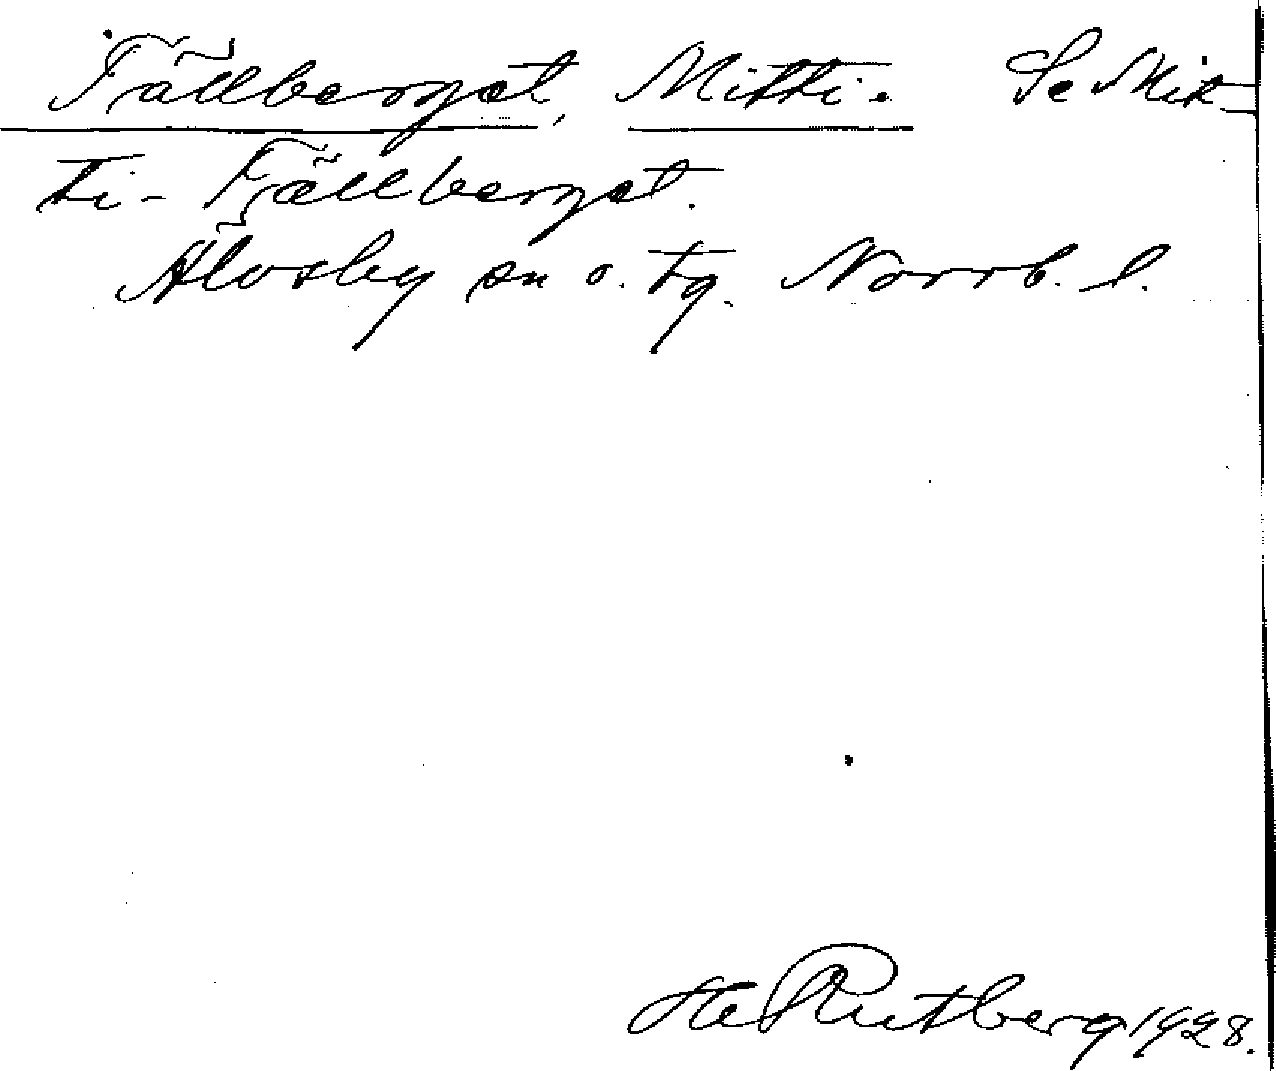 Fällberget, Mitti. Se Mit-
ti-Fällberget.
Älvsby sn o. tg. Norrb. l.
He Rutberg 1928.